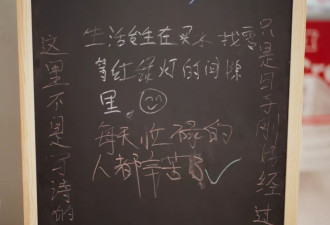 这里不是写诗的
生活发生在买水 找零
等红绿灯的间隙
里。
每天忙碌的
人都辛苦了
只是日子刚好经过